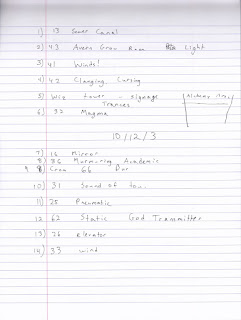 1) 13 Sewer Canal
2) 43 Avern Crow Room Light
3) 41 Winds!
4) 42 Clanging Cursing
5) Wiz tower - signage
Trances
6) 32 Magma
10/12/3
7) 16 Mirror
8) 36 Murmuring Academic
9 Crow 66 Bar
10) 51 Sound of
11) 25 Pneumatic
12 62 Static God Transmitter
13) 26 elevator
14) 33 wind